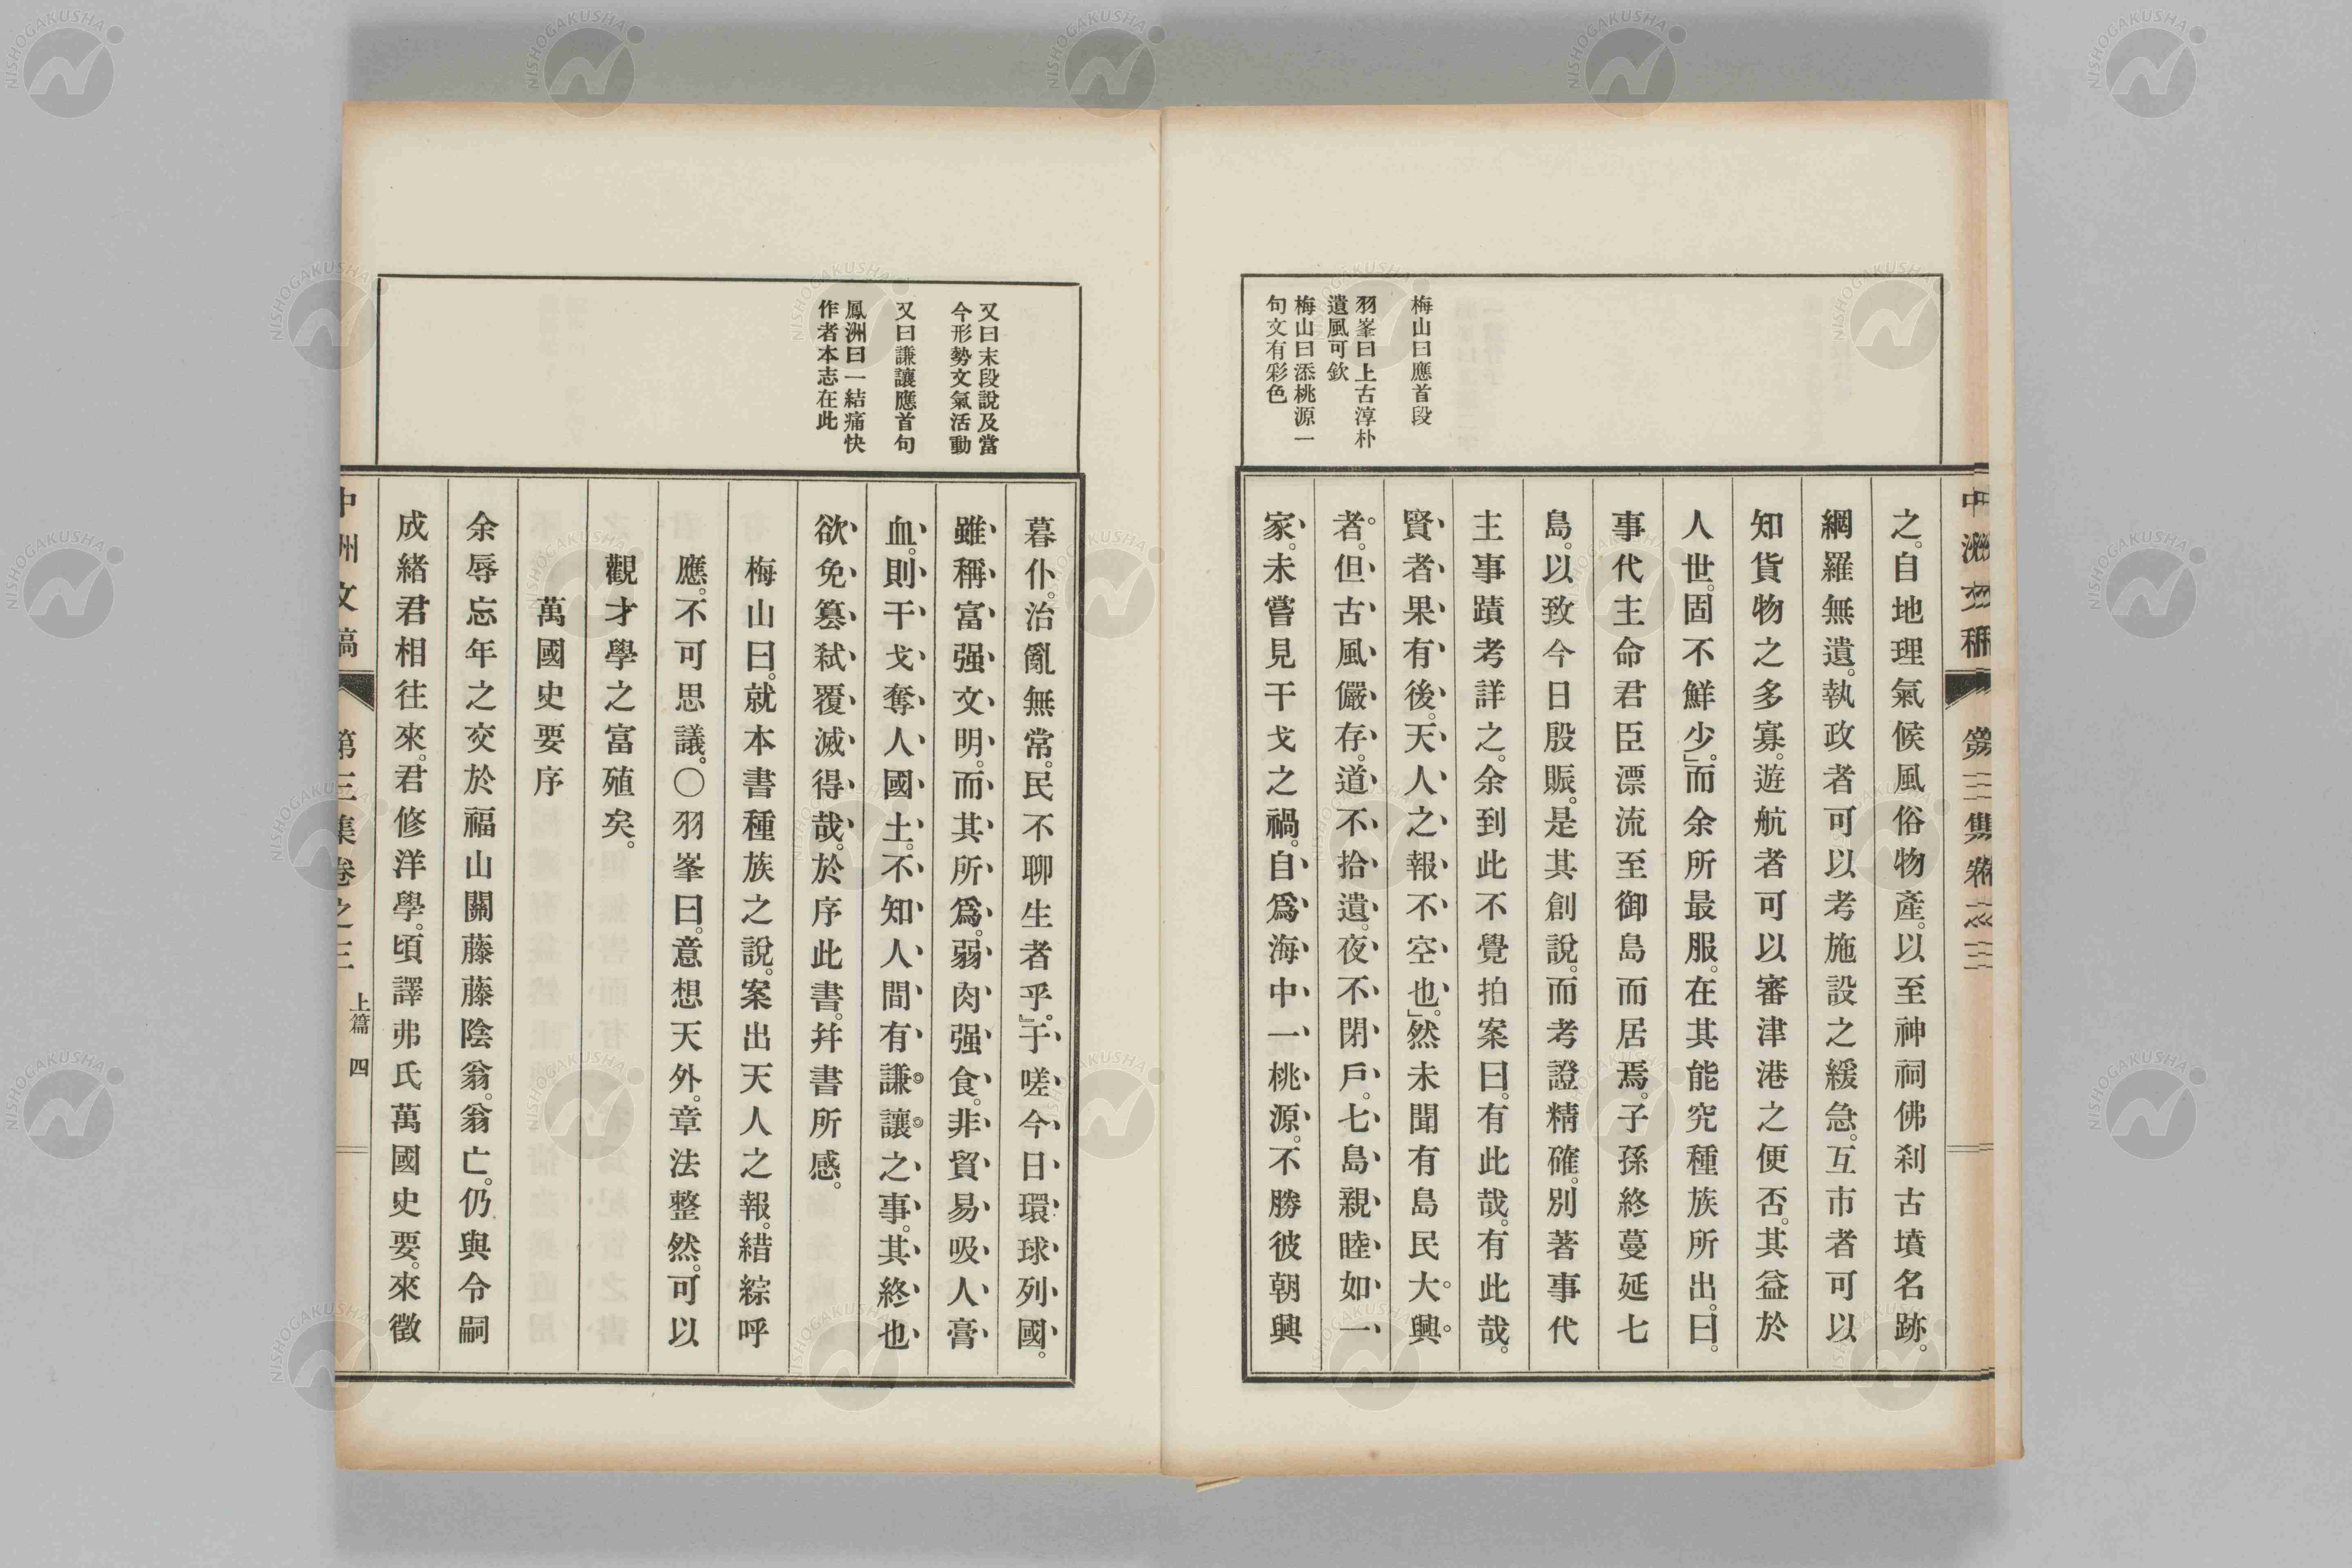 梅山曰應首段
羽峯曰上古淳朴
遺風可欽
梅山曰添桃源一
句文有彩色
之。自地理氣候風俗物產。以至神祠佛刹古墳名跡。
網羅無遺。執政者可以考施設之緩急。互市者可以
知貨物之多寡。遊航者可以審津港之便否。其益於
人世。固不鮮少。」而余所最服。在其能究種族所出。曰。
事代主命君臣漂流至御島而居焉。子孫終蔓延七
島。以致今日殷賑。是其創說。而考證精確。別著事代
主事蹟考詳之。余到此不覺拍案曰。有此哉。有此哉。
賢者果有後。天人之報不空也。」然未聞有島民大興
者。但古風儼存。道不拾遺。夜不閉戶。七島親睦如一
家。未嘗見干戈之禍。自爲海中一桃源。不勝彼朝興
又曰末段說及當
今形勢文氣活動
又曰謙讓應首句
鳳洲曰一結痛快
作者本志在此
暮仆。治亂無常。民不聊生者乎。」于嗟今日環球列國。
雖稱富强文明。而其所爲。弱肉强食。非貿易吸人膏
血。則干戈奪人國土。不知人間有謙讓之事。其終也
欲免簒弑覆滅得哉。於序此書。幷書所感。
梅山曰。就本書種族之說。案出天人之報。錯綜呼
應。不可思議。○羽峯曰。意想天外。章法整然。可以
觀才學之富殖矣。
萬國史要序
余辱忘年之交於福山關藤藤陰翁。翁亡。仍與令嗣
成緒君相往來。君修洋學。頃譯弗氏萬國史要。來徵
中洲文稿 第三集卷之三 上篇 四
NISHOGAKUSHA